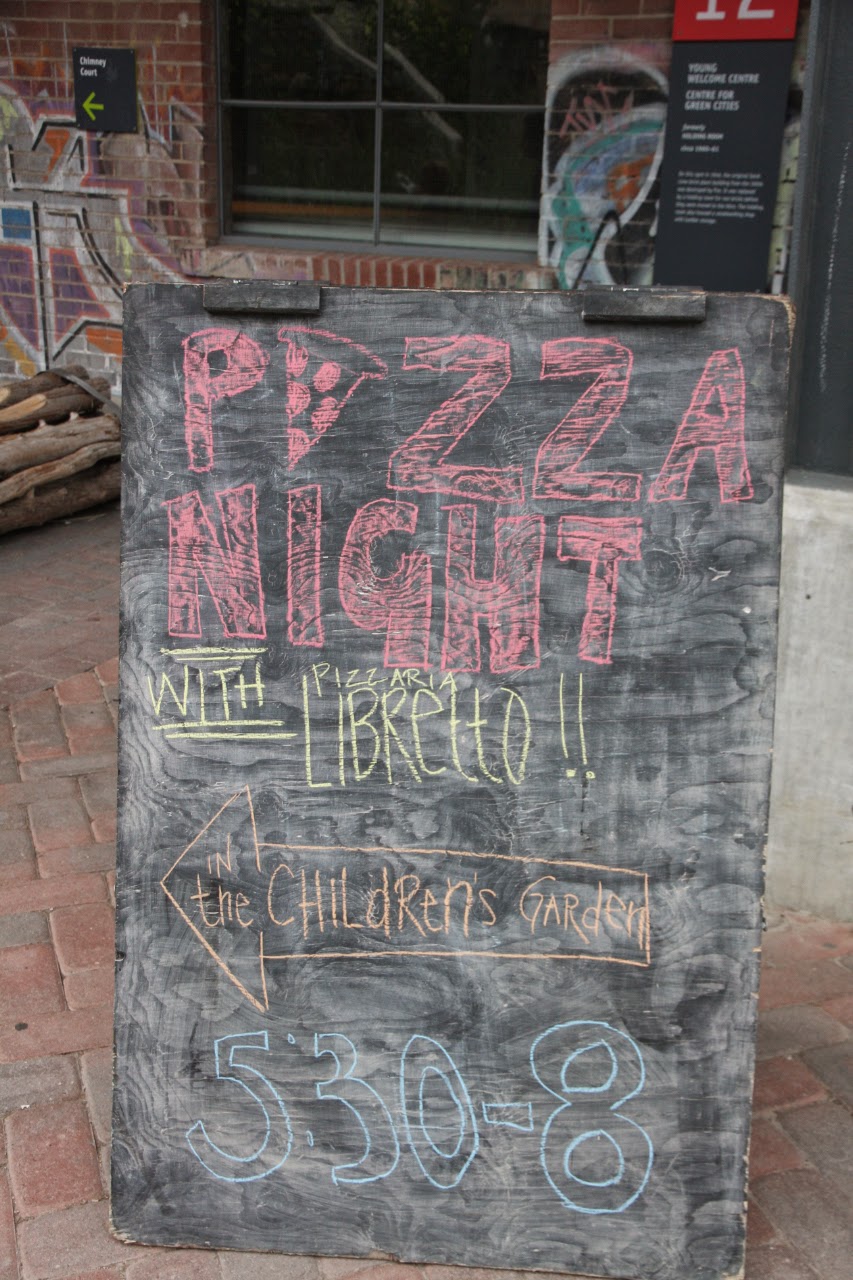 Chimney
Court
12
YOUNG
WELCOME CENTRE
CENTRE FOR
GREEN CITIES
formerly
PIZZA
NIGHT
WITH
PIZZARIA
LIBRETTO!!
IN
the CHILdREn's GARden
5:30-8